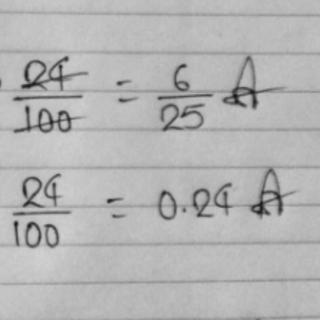 24/100 = 6/25 A
24/100 = 0.24 A